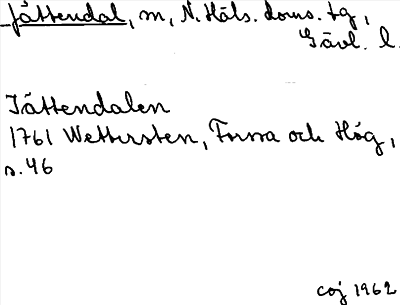 Jättendal, m, N. Häls. doms. tg,
Gävl. l.
Jättendalen
1761 Wettersten, Forssa och Hög,
s. 46
coj 1962